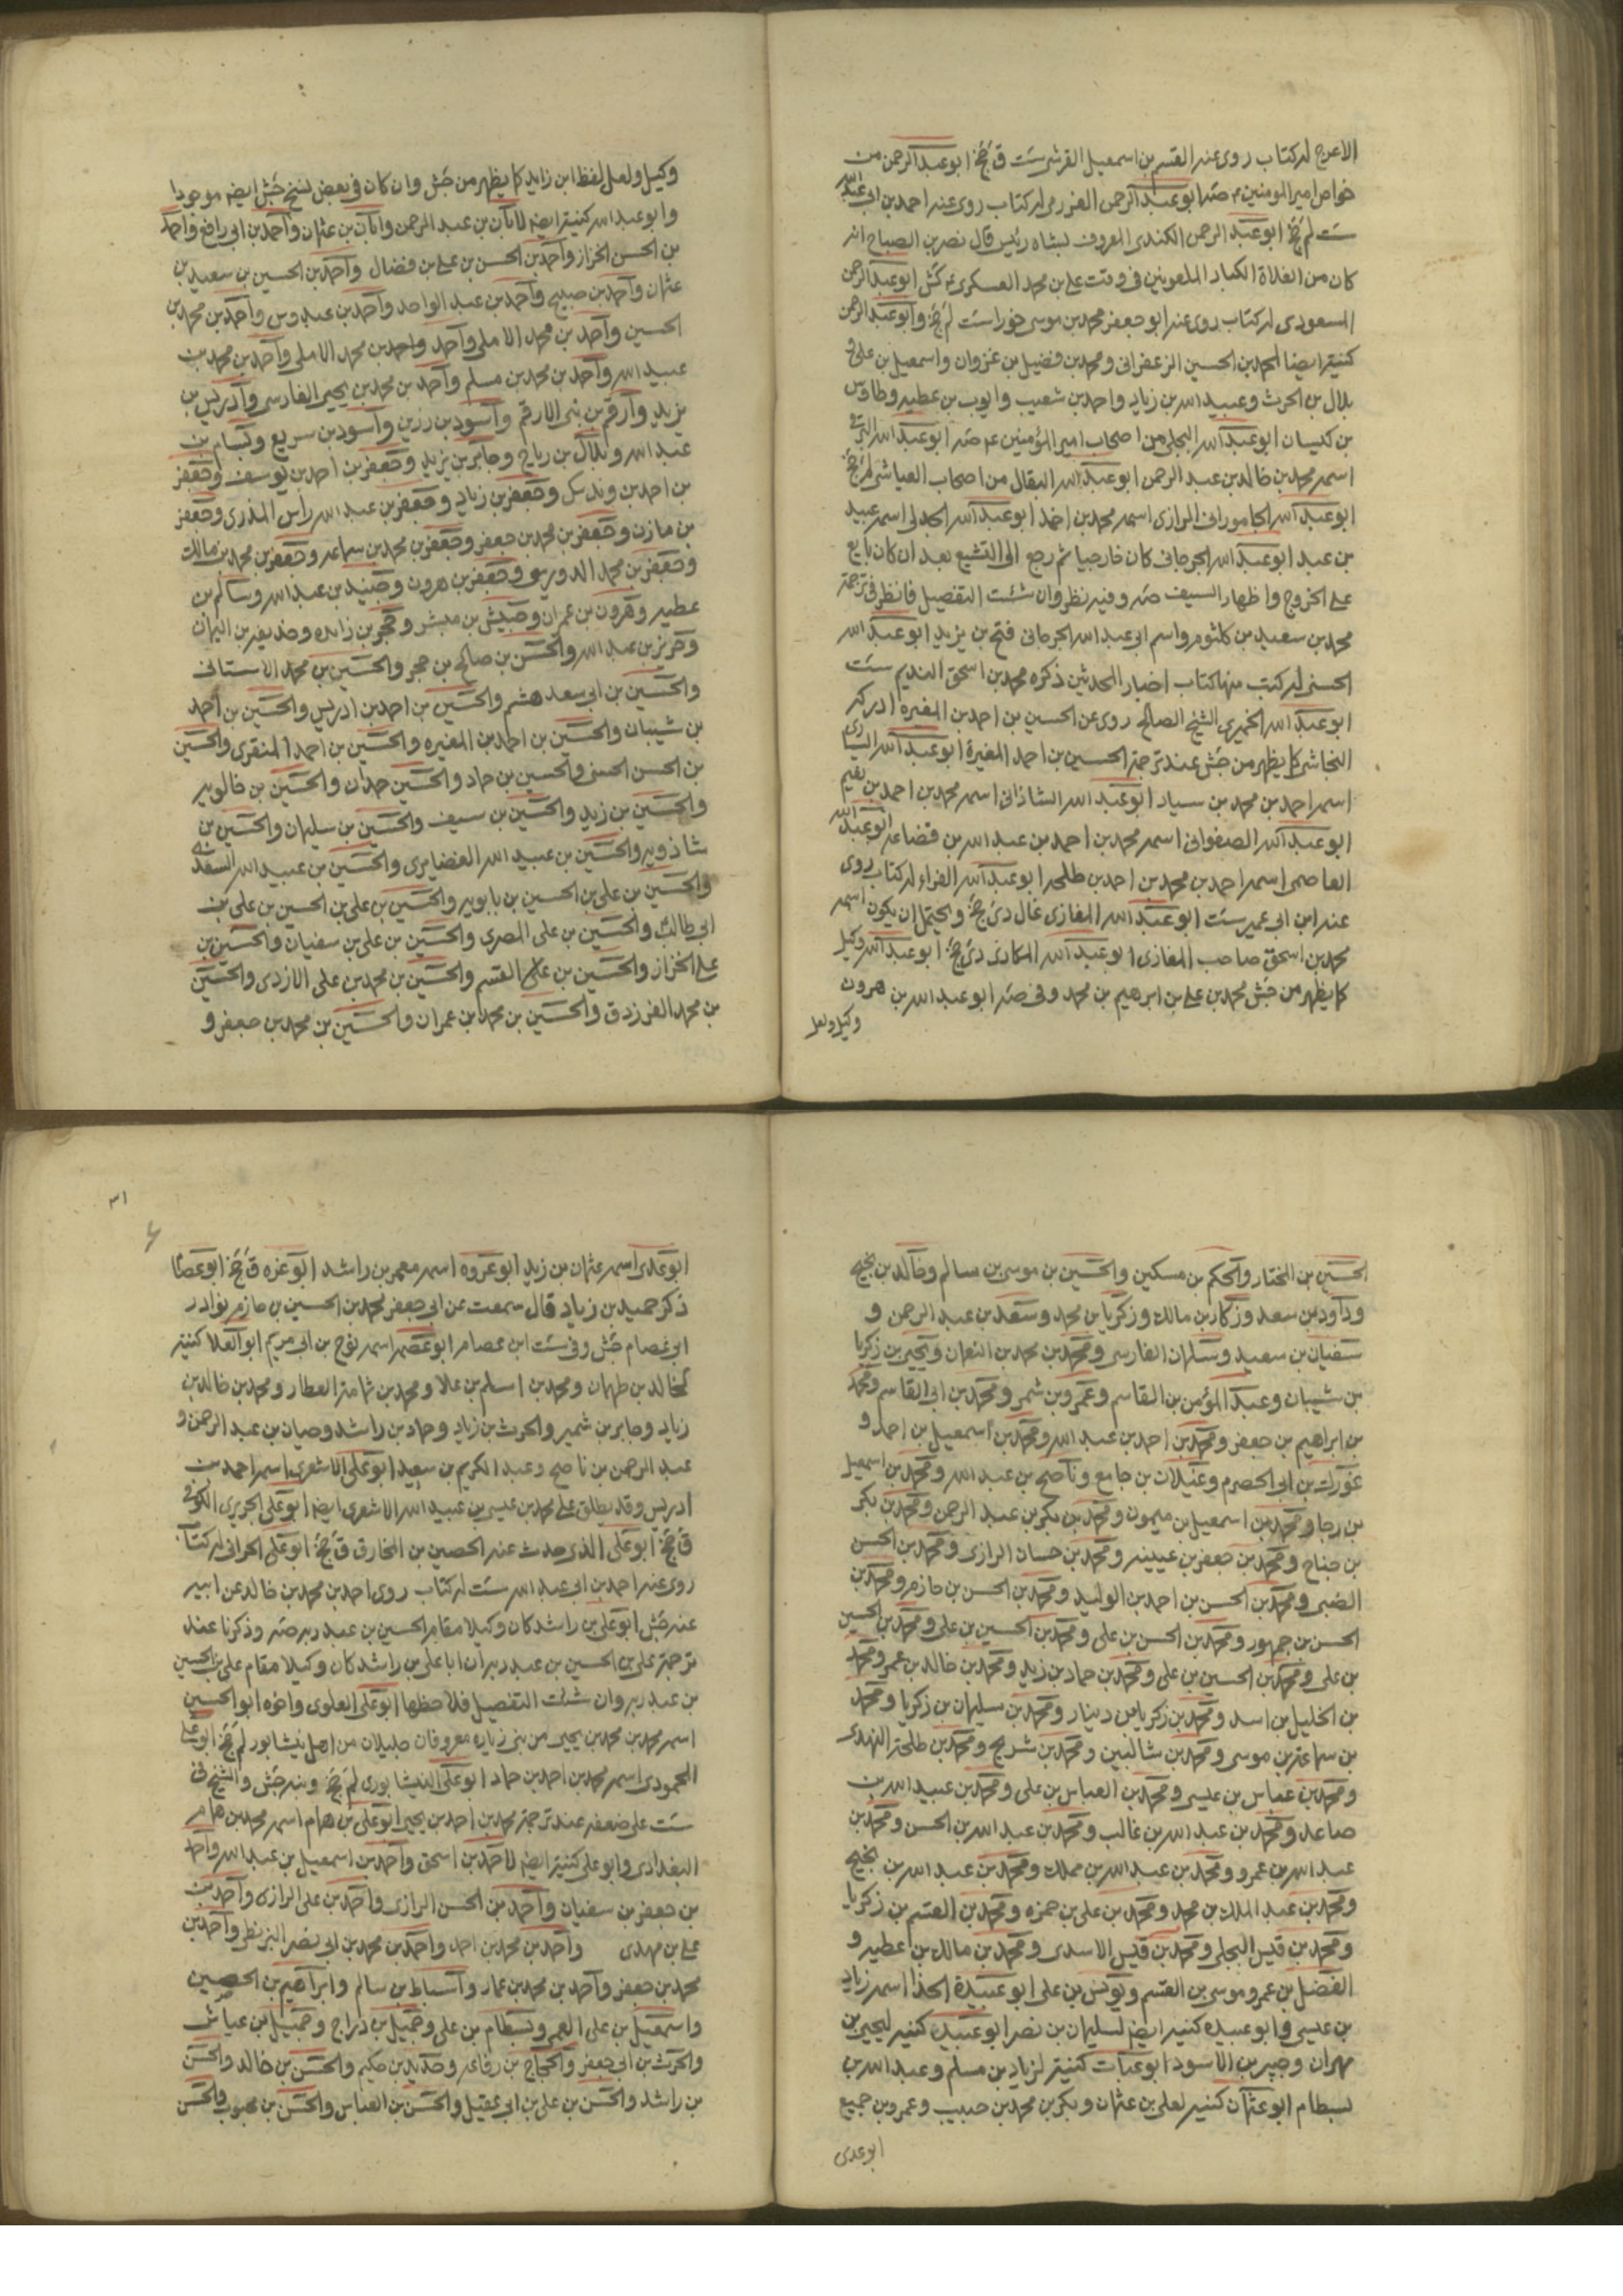 الاعرج له كتاب روى عنه القسم بن اسمعيل القرشى ست ق جخ ابو عبد الرحمن من
خواص امير المومنين ع صه ابو عبد الرحمن العزرمى له كتاب روى عنه احمد بن ابى عبد الله
ست لم جخ ابو عبد الرحمن الكندى المعروف بشاه رئيس قال نصر بن الصباح انه
كان من الغلاة الكبار الملعونين فى وقت على بن محمد العسكرى ع كش ابو عبد الرحمن
المسعودى له كتاب روى عنه ابو جعفر محمد بن موسى خورا ست لم جخ وابو عبد الرحمن
كنية ايضا لمحمد بن الحسين الزعفرانى ومحمد بن فضيل بن غزوان واسمعيل بن على و
بلال بن الحرث وعبيد الله بن زياد واحمد بن شعيب وايوب بن عطيه وطاوس
بن كيسان ابو عبد الله البجلى من اصحاب امير المؤمنين ع صه ابو عبد الله البرقى
اسمه محمد بن خالد بن عبد الرحمن ابو عبد الله البقال من اصحاب العياشى لم جخ
ابو عبد الله الجامورانى الرازى اسمه محمد بن احمد ابو عبد الله الجدلى اسمه عبيد
بن عبد ابو عبد الله الجرجانى كان خارجيا ثم رجع الى التشيع بعد ان كان بايع
على الخروج واظهار السيف صه وفيه نظر وان شئت التفصيل فانظر فى ترجمة
محمد بن سعيد بن كلثوم واسم ابى عبد الله الجرجانى فتح بن يزيد ابو عبد الله
الحسنى له كتب منها كتاب اخبار المحدثين ذكره محمد بن اسحق النديم ست
ابو عبد الله الخميرى الشيخ الصالح روى عن الحسين بن احمد بن المغيره ادركه
النجاشى كما يظهر من جش عند ترجمة الحسين بن احمد المغيرة ابو عبد الله السيارى
اسمه احمد بن محمد بن سيار ابو عبد الله الشاذانى اسمه محمد بن احمد بن نعيم
ابو عبد الله الصفوانى اسمه محمد بن احمد بن عبد الله بن قضاعه ابو عبد الله
العاصمى اسمه احمد بن محمد بن احمد بن طلحه ابو عبد الله الفراء له كتاب روى
عنه ابن ابى عمير ست ابو عبد الله المغازى غال دى جخ ويحتمل ان يكون اسمه
محمد بن اسحق صاحب المغازى ابو عبد الله المكارى دى جخ ابو عبد الله وكيل
كما يظهر من جش محمد بن على بن ابرهيم بن محمد وفى صه ابو عبد الله بن هرون
وكيل ولعل
وكيل ولعل لفظ ابن زايد كما يظهر من جش وان كان فى بعض نسخ جش ايضه موجودا
وابو عبد الله كنية ايضه لابان بن عبد الرحمن وابان بن عثمان واحمد بن ابى رافع واحمد
بن الحسن الخزاز واحمد بن الحسن بن على بن فضال واحمد بن الحسين بن سعيد بن
عثمان واحمد بن صبيح واحمد بن عبد الواحد واحمد بن عبدوس واحمد بن محمد بن
الحسين واحمد بن محمد الاملى واحمد واحمد بن محمد الاملى واحمد بن محمد بن
عبيد الله واحمد بن محمد بن مسلم واحمد بن محمد بن يحيى الفارسى وادريس بن
يزيد وارقم بن بنى الارقم واسود بن رزين واسود بن سريع وبسام بن
عبد الله وبلال بن رباح وجابر بن يزيد وجعفر بن احمد بن يوسف وجعفر
بن احمد بن وندك وجعفر بن زياد وجعفر بن عبد الله راس المذرى وجعفر
بن مازن وجعفر بن محمد بن جعفر وجعفر بن محمد بن سماعه وجعفر بن محمد بن مالك
وجعفر بن محمد الدوريسى وجعفر بن هرون وجنيد بن عبد الله وسالم بن
عطيه وهرون بن عمران وحبيش بن مبشر وحجر بن زايده وحذيفه بن اليمان
وحريز بن عبد الله والحسن بن صالح بن حجر والحسين بن محمد الاستانى
والحسين بن ابى سعد هشم والحسين بن احمد بن ادريس والحسين بن احمد
بن شيبان والحسين بن احمد بن المغيره والحسين بن احمد المنقرى والحسين
بن الحسن الحسنى والحسين بن حماد والحسين حمدان والحسين بن خالويه
والحسين بن زيد والحسين بن سيف والحسين بن سليمان والحسين بن
شاذويه والحسين بن عبيد الله الغضايرى والحسين بن عبيد الله السعدى
والحسين بن على بن الحسين بن بابويه والحسين بن على بن الحسين بن على بن
ابى طالب والحسين بن على المصرى والحسين بن على بن سفيان والحسين بن
على الخزاز والحسين بن على القسم والحسين بن محمد بن على الازدى والحسين
بن محمد الفرزدق والحسين بن محمد بن عمران والحسين بن محمد بن جعفر و
الحسين بن المختار والحكم بن مسكين والحسين بن موسى بن سالم وخالد بن نجيح
وداود بن سعد وزكار بن مالك وزكريا بن محمد وسعد بن عبد الرحمن و
سفيان بن سعيد وسلمان الفارسى ومحمد بن محمد بن النعمان ويحيى بن زكريا
بن شيبان وعبد المؤمن بن القاسم وعمرو بن شمر ومحمد بن ابى القاسم ومحمد
بن ابراهيم بن جعفر ومحمد بن احمد بن عبد الله ومحمد بن اسمعيل بن احمد و
عوركت بن ابى الخصرم وغيلان بن جامع وناصح بن عبد الله ومحمد بن اسمعيل
بن رجا ومحمد بن اسمعيل بن ميمون ومحمد بن بكر بن عبد الرحمن ومحمد بن بكر
بن جناح ومحمد بن جعفر بن عيينه ومحمد بن حسان الرازى ومحمد بن الحسن
الضبى ومحمد بن الحسن بن احمد بن الوليد ومحمد بن الحسن بن حازم ومحمد بن
الحسن بن جمهور ومحمد بن الحسن بن على ومحمد بن الحسين بن على ومحمد بن الحسين
بن على ومحمد بن الحسين بن على ومحمد بن حماد بن زيد ومحمد بن خالد بن عمر ومحمد
بن الخليل بن اسد ومحمد بن زكريا بن دينار ومحمد بن سليمان بن زكريا ومحمد
بن سماعة بن موسى ومحمد بن شالنبين ومحمد بن شريح ومحمد بن طلحة النهدى
ومحمد بن عباس بن عيسى ومحمد بن العباس بن على ومحمد بن عبيد الله بن
صاعد ومحمد بن عبد الله بن غالب ومحمد بن عبد الله بن الحسن ومحمد بن
عبد الله بن عمرو ومحمد بن عبد الله بن مملك ومحمد بن عبد الله بن نجيح
ومحمد بن عبد الملك بن محمد ومحمد بن على بن حمزه ومحمد بن القسم بن زكريا
ومحمد بن قيس البجلى ومحمد بن قيس الاسدى ومحمد بن مالك بن عطيه و
الفضل بن عمر وموسى بن القسم ويونس بن على ابو عبيدة الحذا اسمه زياد
بن عيسى وابو عبيده كنيه ايضه لسليمان بن نصر ابو عبيده كنيه ليحيى بن
مهران وجبير بن الاسود ابو عتاب كنية لزياد بن مسلم وعبد الله بن
بسطام ابو عثمان كنيه لعلى بن عثمان وبكر بن محمد بن حبيب وعمرو بن جميع
ابو عدى
٣١
ابو عدى اسمه عثمان بن زيد ابو عروه اسمه معمر بن راشد ابو عزه ق جخ ابو عصام
ذكر حميد بن زياد قال سمعت عن ابى جعفر محمد بن الحسين بن حازم نوادر
ابى عصام جش وفى ست ابن عصام ابو عصمه اسمه نوح بن ابى مريم ابو العلا كنية
لخالد بن طهمان ومحمد بن اسلم بن علا ومحمد بن ثمامة العطار ومحمد بن خالد بن
زياد وجابر بن شمير والحرث بن زياد وحماد بن راشد وحيان بن عبد الرحمن و
عبد الرحمن بن ناصح وعبد الكريم بن سعيد ابو على الاشعرى اسمه احمد بن
ادريس وقد يطلق على محمد بن عيسى بن عبيد الله الاشعرى ايضه ابو على الجريرى الكوفى
ق جخ ابو على الذى حدث عنه الحصين بن المخارق ق جخ ابو على الحرانى له كتاب
روى عنه احمد بن ابى عبد الله ست له كتاب روى احمد بن محمد بن خالد عن ابيه
عنه جش ابو على بن راشد كان وكيلا مقام الحسين بن عبد ربه صه وذكرنا عند
ترجمة على بن الحسين بن عبد ربه ان ابا على بن راشد كان وكيلا مقام على بن الحسين
بن عبد ربه وان شئت التفصيل فلاحظها ابو على العلوى واخوه ابو الحسين
اسمه محمد بن محمد بن يحيى من بنى زياره معروفان جليلان من اهل نيشابور لم جخ ابو على
المحمودى اسمه محمد بن احمد بن حماد ابو على النيشابورى لم جخ ونبه جش والشيخ فى
ست على ضعفه عند ترجمة محمد بن احمد بن يحيى ابو على بن همام اسمه محمد بن همام
البغدادى وابو على كنية ايضه لاحمد بن اسحق واحمد بن اسمعيل بن عبد الله واحمد
بن جعفر بن سفيان واحمد بن الحسن الرازى واحمد بن على الرازى واحمد بن
على بن مهدى واحمد بن محمد بن احمد واحمد بن محمد بن ابى نصر البزنطى واحمد بن
محمد بن جعفر واحمد بن محمد بن عمار واسباط بن سالم وابراهيم بن الحصين
واسمعيل بن على العمى وبسطام بن على وجميل بن دراج وجميل بن عياش
والحرث بن ابى جعفر والحجاج بن رفاعه وحديد بن حكيم والحسن بن خالد والحسن
بن راشد والحسن بن على بن ابى عقيل والحسن بن العباس والحسن بن محبوب والحسن